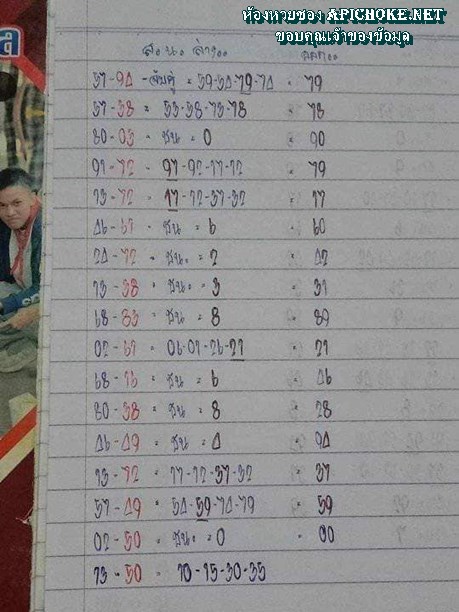 ห้องหวยซอง APICHOKE.NET
ขอบคุณเจ้าของข้อมูล
ล่าง
57-94 - จับคู่ = 59-54-79-74 = 79
57-38 = 53-58-73-78 = 78
80-03 = ชน = 0 = 90
91-72 = 97-92-17-12 = 79
13-72 = 17-12-37-32 = 17
46-67 = ชน = 6 = 60
24-72 = ชน = 2 = 42
73-38 = ชน = 3 = 31
68-83 = ชน = 8 = 89
02-67 = 06-07-26-27 = 21
68-76 = ชน = 6 = 46
80-38 = ชน = 8 = 28
46-49 = ชน = 4 = 94
13-72 = 17-12-37-32 = 37
57-49 = 54-59-74-79 = 59
02-50 = ชน = 0 = 00
73-50 = 70-75-30-35